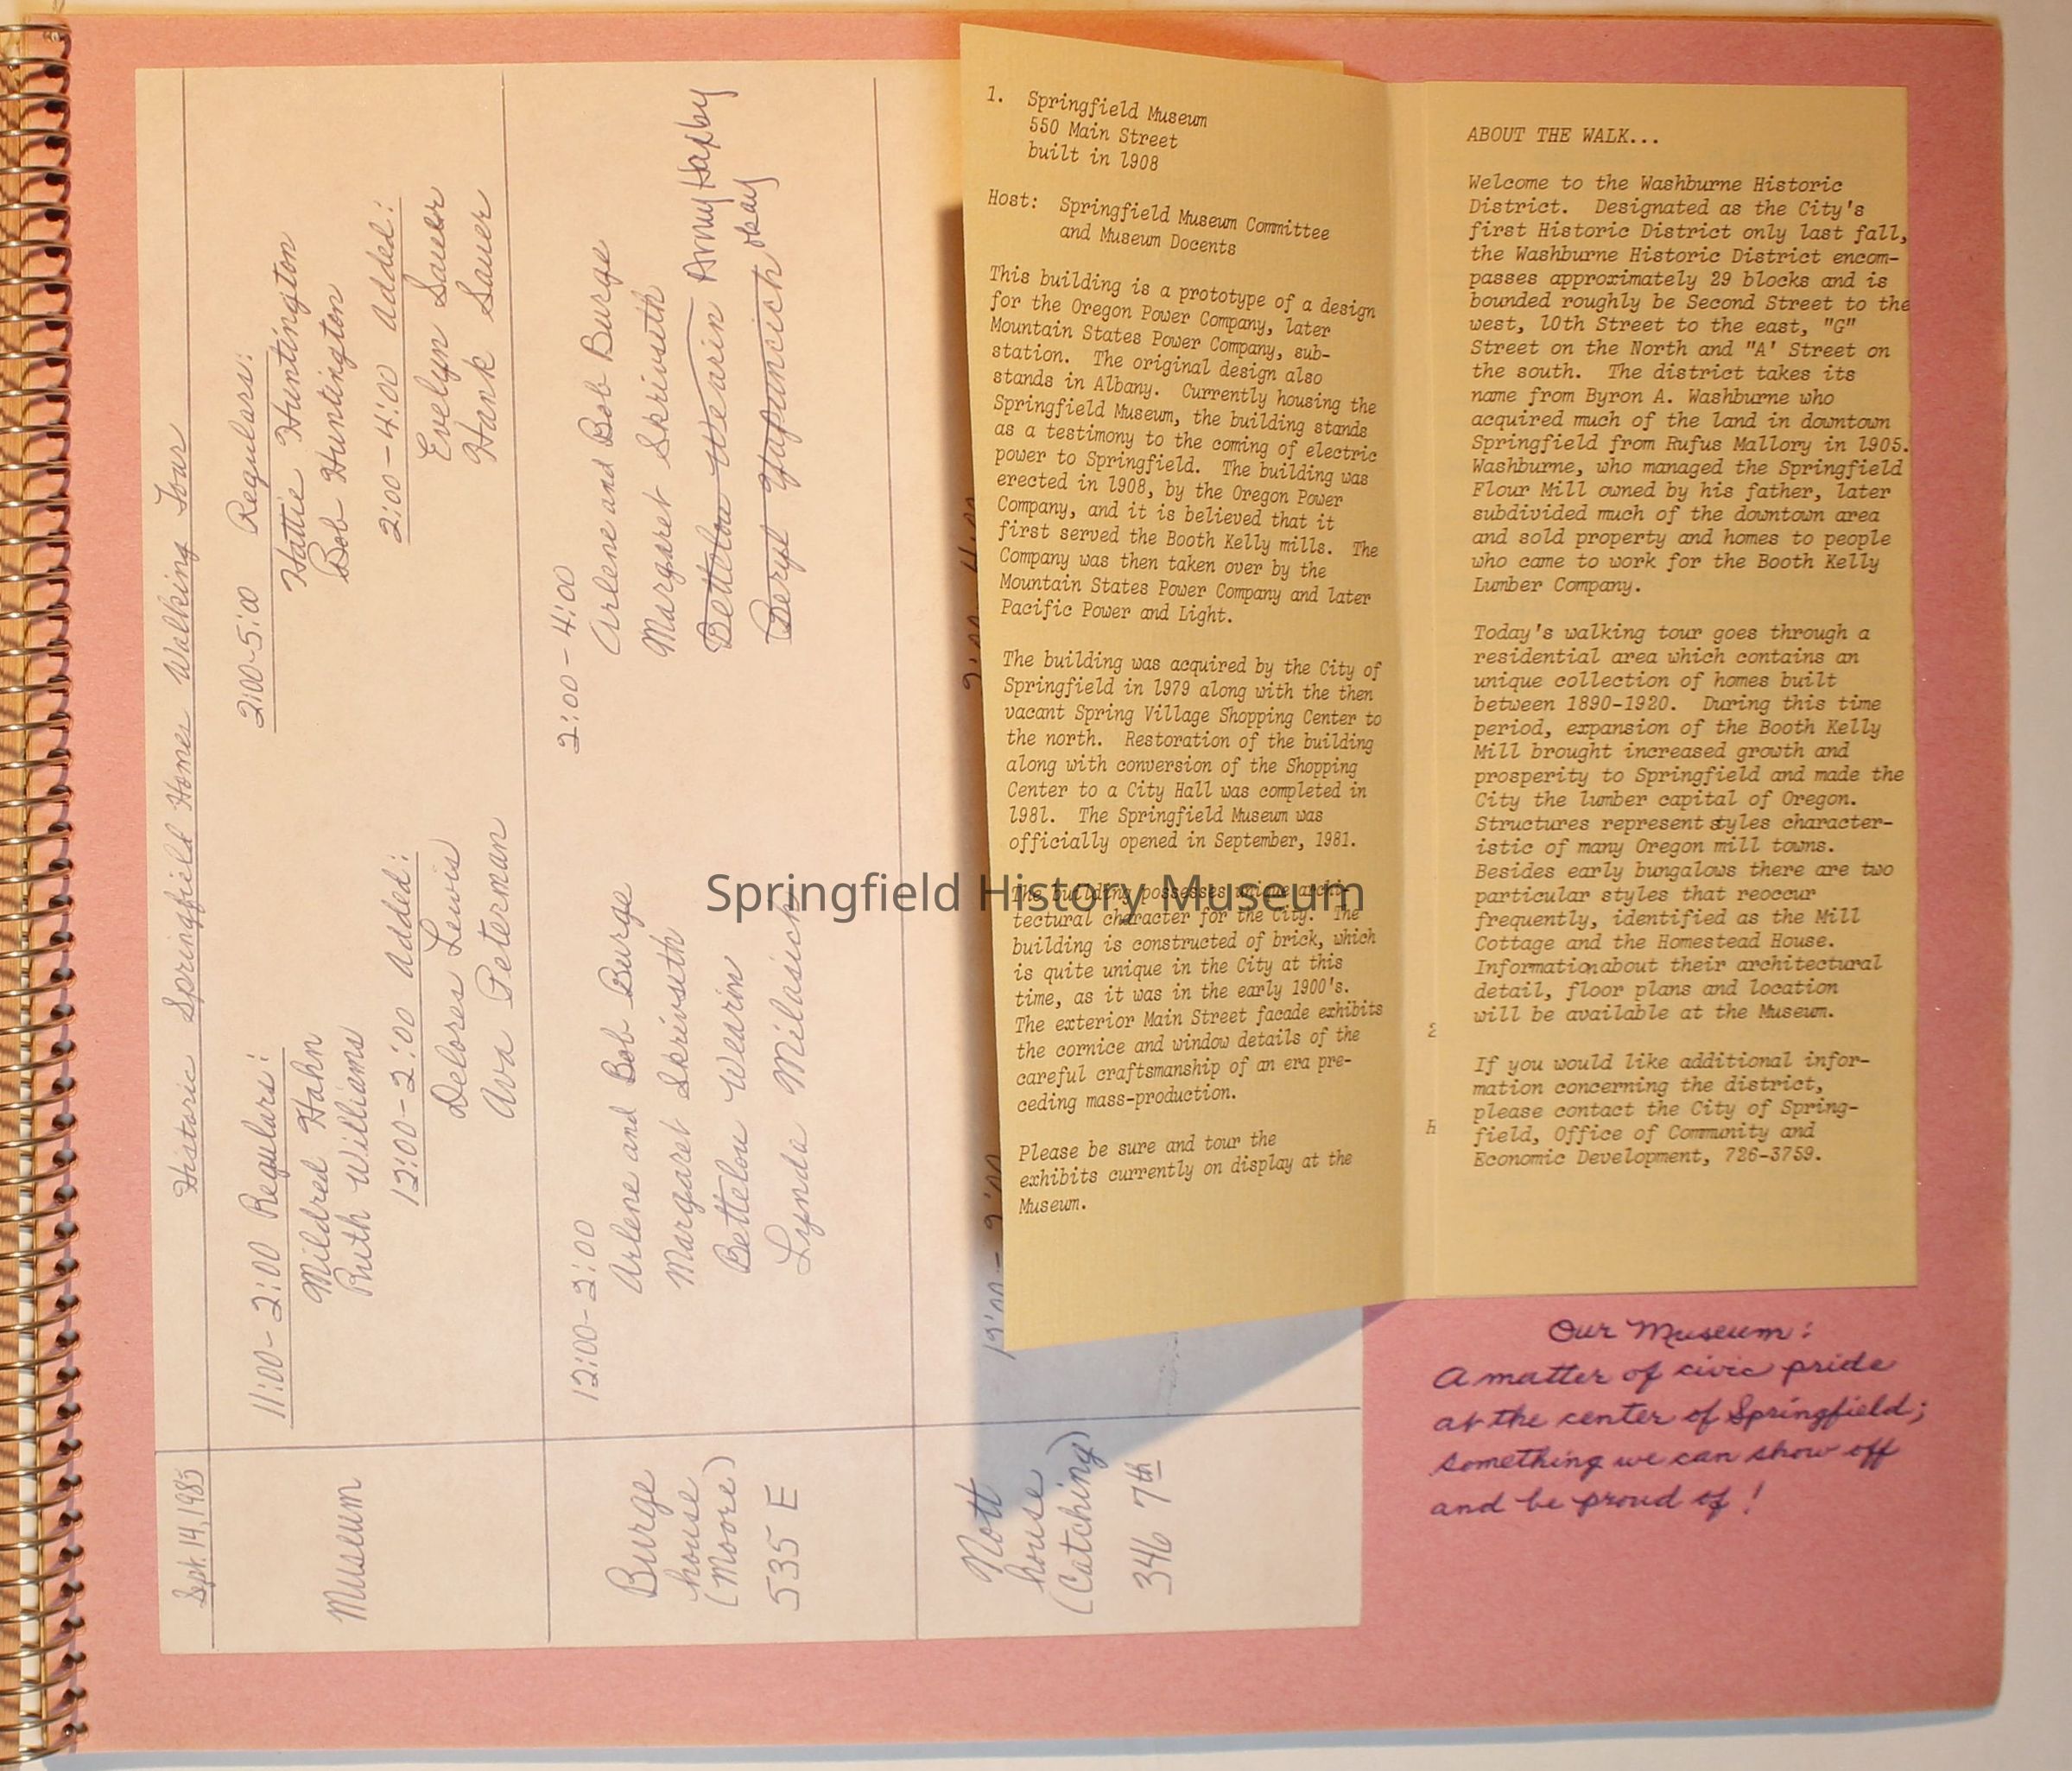 Historic Springfield Homes Walking Tour
Sept. 14, 1985
Museum
11:00-2:00 Regulars:
Mildred Hahn
Ruth Williams
12:00-2:00 Added:
Delores Lewis
Ava Peterman
2:00-5:00 Regulars:
Hattie Huntington
Bob Huntington
2:00-4:00 Added:
Evelyn Sauer
Hank Sauer
Burge
house
(Moore)
535 E
12:00-2:00
Arlene and Bob Burge
Margaret Skrivseth
Bettelou Wearin
Lynda Milasich
2:00-4:00
Arlene and Bob Burge
Margaret Skrivseth
Bettelou Wearin
Beryl okay
Nott
house
(Catching)
346 7th
1. Springfield Museum
550 Main Street
built in 1908
Host: Springfield Museum Committee
and Museum Docents
This building is a prototype of a design
for the Oregon Power Company, later
Mountain States Power Company, sub-
station. The original design also
stands in Albany. Currently housing the
Springfield Museum, the building stands
as a testimony to the coming of electric
power to Springfield. The building was
erected in 1908, by the Oregon Power
Company, and it is believed that it
first served the Booth Kelly mills. The
Company was then taken over by the
Mountain States Power Company and later
Pacific Power and Light.
The building was acquired by the City of
Springfield in 1979 along with the then
vacant Spring Village Shopping Center to
the north. Restoration of the building
along with conversion of the Shopping
Center to a City Hall was completed in
1981. The Springfield Museum was
officially opened in September, 1981.
The building possesses unique archi-
tectural character for the City. The
building is constructed of brick, which
is quite unique in the City at this
time, as it was in the early 1900's.
The exterior Main Street facade exhibits
the cornice and window details of the
careful craftsmanship of an era pre-
ceding mass-production.
Please be sure and tour the
exhibits currently on display at the
Museum.
ABOUT THE WALK...
Welcome to the Washburne Historic
District. Designated as the City's
first Historic District only last fall,
the Washburne Historic District encom-
passes approximately 29 blocks and is
bounded roughly be Second Street to the
west, 10th Street to the east, "G"
Street on the North and "A' Street on
the south. The district takes its
name from Byron A. Washburne who
acquired much of the land in downtown
Springfield from Rufus Mallory in 1905.
Washburne, who managed the Springfield
Flour Mill owned by his father, later
subdivided much of the downtown area
and sold property and homes to people
who came to work for the Booth Kelly
Lumber Company.
Today's walking tour goes through a
residential area which contains an
unique collection of homes built
between 1890-1920. During this time
period, expansion of the Booth Kelly
Mill brought increased growth and
prosperity to Springfield and made the
City the lumber capital of Oregon.
Structures represent styles character-
istic of many Oregon mill towns.
Besides early bungalows there are two
particular styles that reoccur
frequently, identified as the Mill
Cottage and the Homestead House.
Information about their architectural
detail, floor plans and location
will be available at the Museum.
If you would like additional infor-
mation concerning the district,
please contact the City of Spring-
field, Office of Community and
Economic Development, 726-3759.
Our Museum:
A matter of civic pride
at the center of Springfield;
something we can show off
and be proud of!
Springfield History Museum